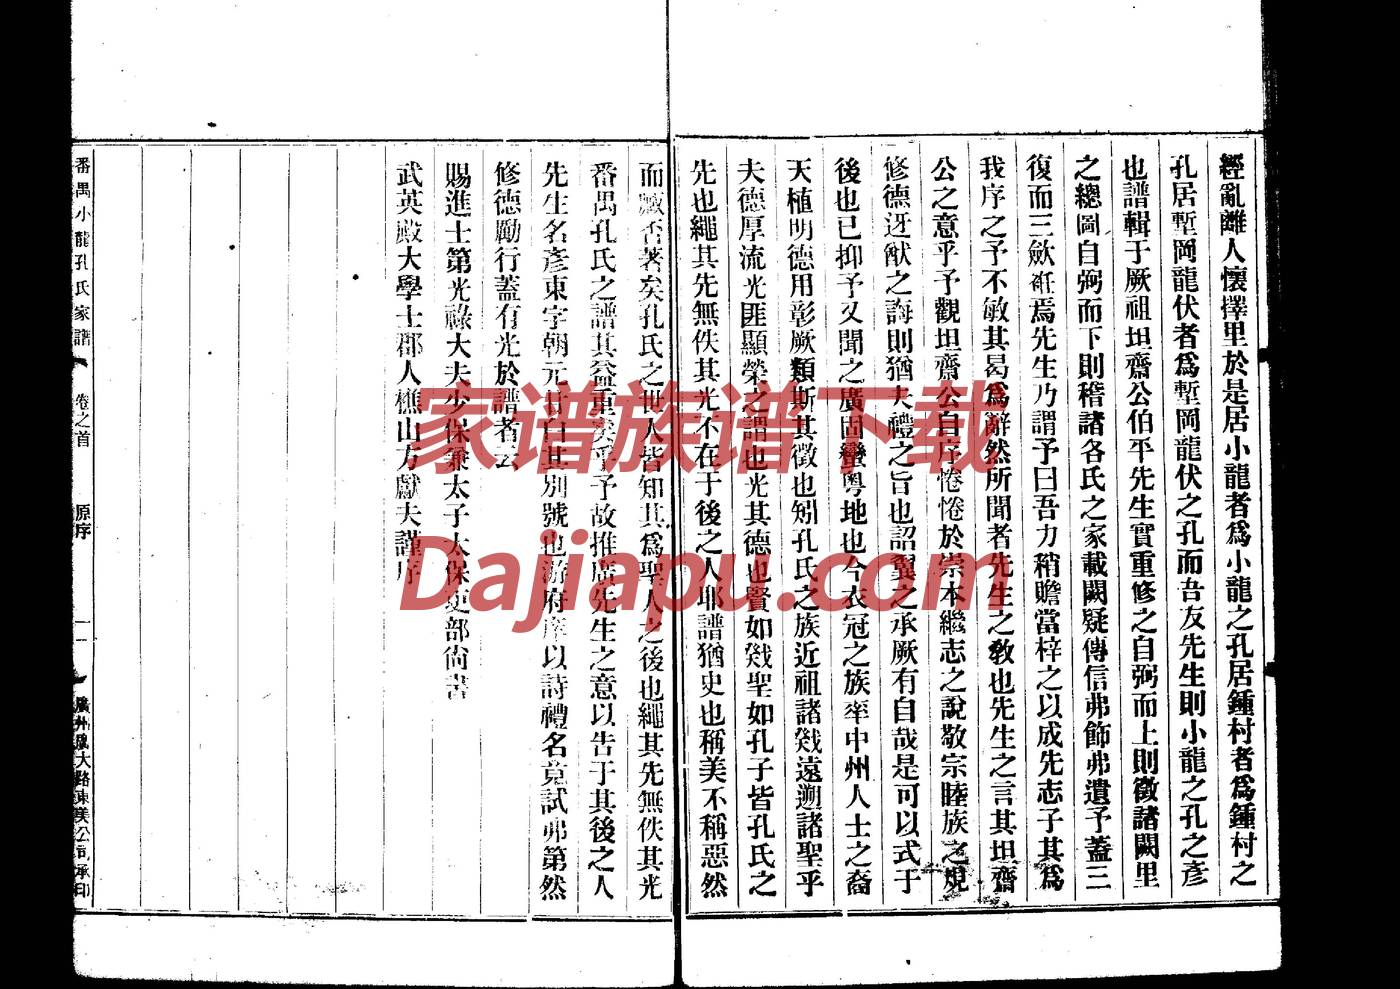 經亂離人懷擇里於是居小龍者爲小龍之孔居鍾村者爲鍾村之
孔居塹岡龍伏者爲塹岡龍伏之孔而吾友先生則小龍之孔之彥
也譜輯于厥祖坦齋公伯平先生實重修之自弼而上則徵諸闕里
之總圖自弼而下則稽諸各氏之家載闕疑傳信弗飾弗遺予蓋三
復而三歛衽焉先生乃謂予曰吾力稍贍當梓之以成先志子其爲
我序之予不敏其曷爲辭然所聞者先生之敎也先生之言其坦齋
公之意乎予觀坦齋公自序惓惓於崇本繼志之說敬宗睦族之規
修德迓猷之誨則猶夫禮之旨也詔翼之承厥有自哉是可以式于
後也已抑予又聞之廣固蠻粤地也今衣冠之族率中州人士之裔
天植明德用彰厥類斯其徵也矧孔氏之族近祖諸戣遠遡諸聖乎
夫德厚流光匪顯榮之謂也光其德也賢如戣聖如孔子皆孔氏之
先也繩其先無佚其光不在于後之人耶譜猶史也稱美不稱惡然
而臧否著矣孔氏之世人皆知其爲聖人之後也繩其先無佚其光
番禺孔氏之譜其益重矣乎予故推廣先生之意以告于其後之人
先生名彥東字朝元廿白其別號也游府庠以詩禮名竟試弗第然
修德勵行蓋有光於譜者云
賜進士第光祿大夫少保兼太子太保吏部尙書
武英殿大學士郡人樵山方獻夫謹序
番禺小龍孔氏家譜 卷之首 原序 十一 廣州龍大路東美公司承印
家谱族谱下载
Dajiapu.com